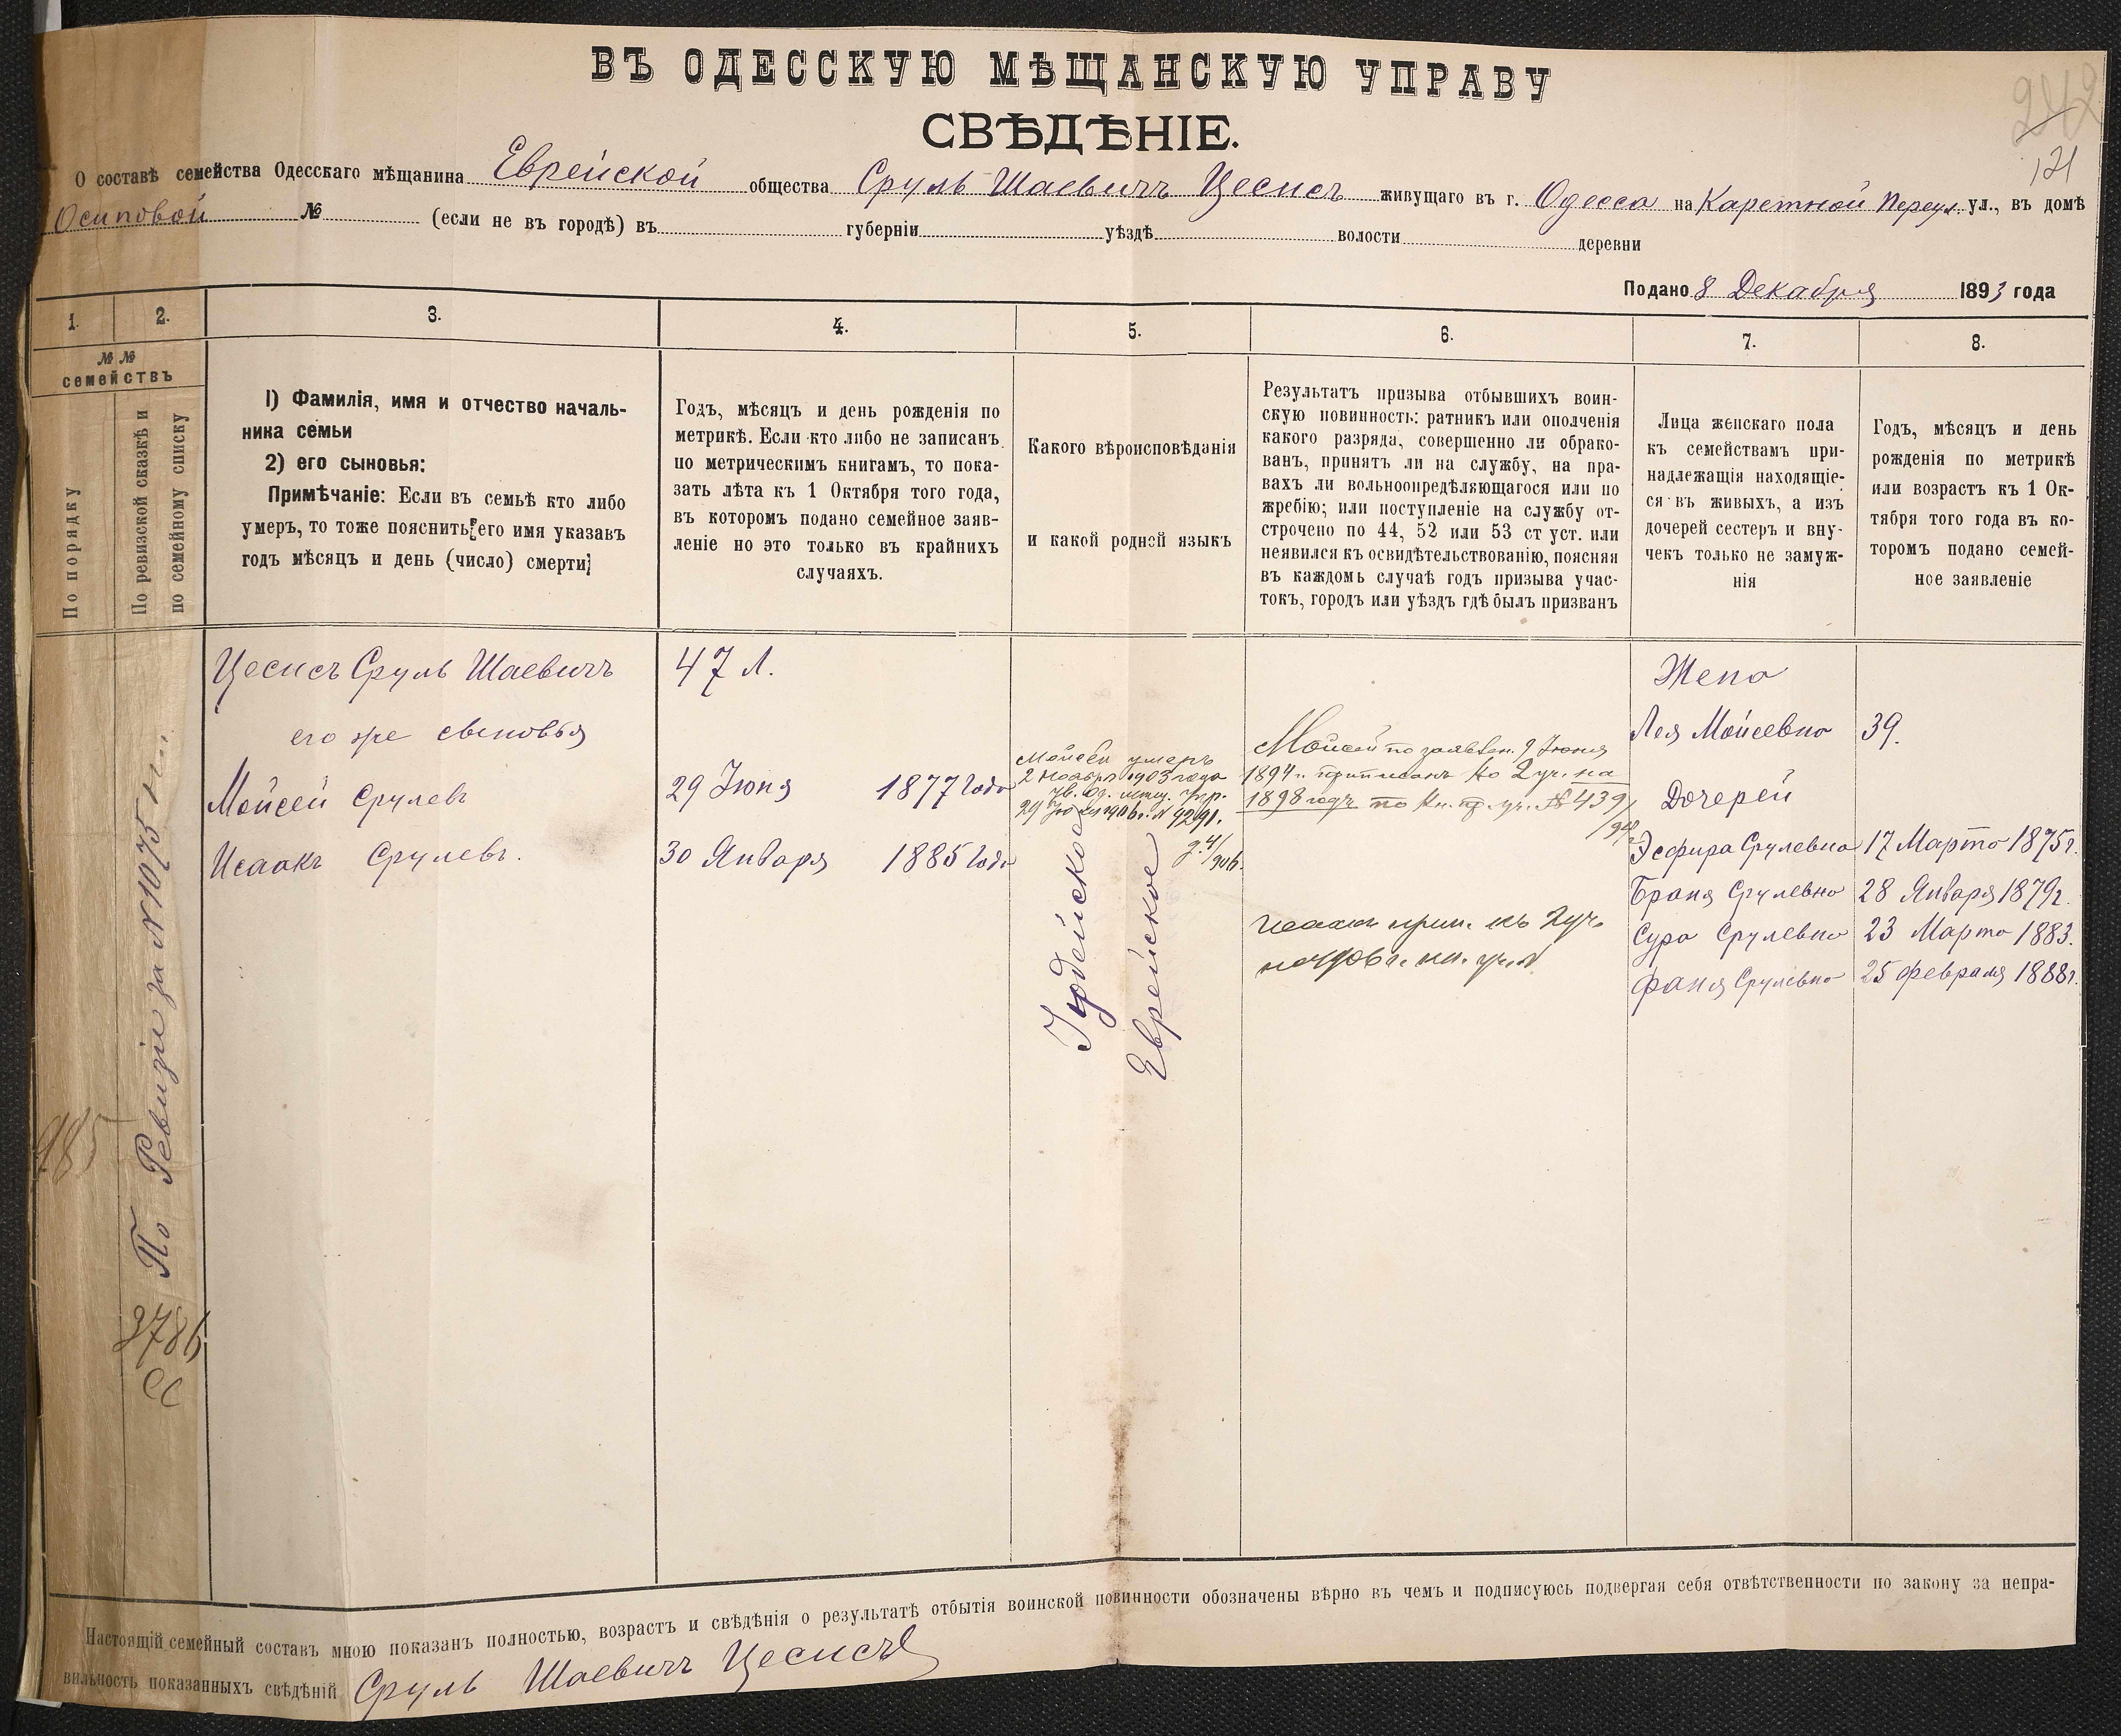 ВЪ ОДЕССКУЮ МѢЩАНСКУЮ УПРАВУ
СВѢДѢНІЕ.
242
121
О составѣ семейства Одесскаго мѣщанина Еврейской общества Сруль Шаевичъ Цесисъ живущаго въ г. Одесса на Каретной Переул. ул., въ домѣ
Осиповой № (если не въ городѣ) въ губерніи уѣздѣ волости деревни
Подано 8 Декабря 1893 года
1. 2. 3. 4. 5. 6. 7. 8.
№ №
семействъ
По порядку
По ревизской сказкѣ и
по семейному списку
1) Фамилія, имя и отчество началь-
ника семьи
2) его сыновья:
Примѣчаніе: Если въ семьѣ кто либо
умеръ, то тоже пояснить его имя указавъ
годъ мѣсяцъ и день (число) смерти
Годъ, мѣсяцъ и день рожденія по
метрикѣ. Если кто либо не записанъ
по метрическимъ книгамъ, то пока-
зать лѣта къ 1 Октября того года,
въ которомъ подано семейное заяв-
леніе но это только въ крайнихъ
случаяхъ.
Какого вѣроисповѣданія
и какой родной языкъ
Результатъ призыва отбывшихъ воин-
скую повинность: ратникъ или ополченія
какого разряда, совершенно ли обрако-
ванъ, принятъ ли на службу, на пра-
вахъ ли вольноопредѣляющагося или по
жребію; или поступленіе на службу от-
строчено по 44, 52 или 53 ст уст. или
неявился къ освидѣтельствованію, поясняя
въ каждомъ случаѣ годъ призыва учас-
токъ, городъ или уѣздъ гдѣ былъ призванъ
Лица женскаго пола
къ семействамъ при-
надлежащія находящіе-
ся въ живыхъ, а изъ
дочерей сестеръ и вну-
чекъ только не замуж-
нія
Годъ, мѣсяцъ и день
рожденія по метрикѣ
или возрастъ къ 1 Ок-
тября того года въ ко-
торомъ подано семей-
ное заявленіе
985
По Ревизіи за № 1075
3786
СС
Цесисъ Сруль Шаевичъ 47 Л.
его же сыновья
Мойсей Срулевъ 29 Іюня 1877 Года
Исаакъ Срулевъ. 30 Января 1885 Года
Мойсей умеръ
2 Ноября 1903 года
ув. Од. мѣщ. Упр.
29 1906 г. № 9291.
д. 4/906.
Іудейское
Еврейское
Мойсей по заявлен. 9 Іюня
1894 г. приписанъ ко 2 уч. на
1898 годъ по Кн. пр. уч. № 439/
94
Исаакъ прип. къ 2 уч.
на 1906 г. кн. уч. №
Жена
Лея Мойсевна 39.
Дочерей
Эсфира Срулевна 17 Марта 1875 г.
Браня Срулевна 28 Января 1879 г.
Сура Срулевна 23 Марта 1883.
Фаня Срулевна 25 Февраля 1888 г.
Настоящій семейный составъ мною показанъ полностью, возрастъ и свѣдѣнія о результатѣ отбытія воинской повинности обозначены вѣрно въ чемъ и подписуюсь подвергая себя отвѣтственности по закону за непра-
вильность показанныхъ свѣдѣній Сруль Шаевичъ Цесисъ